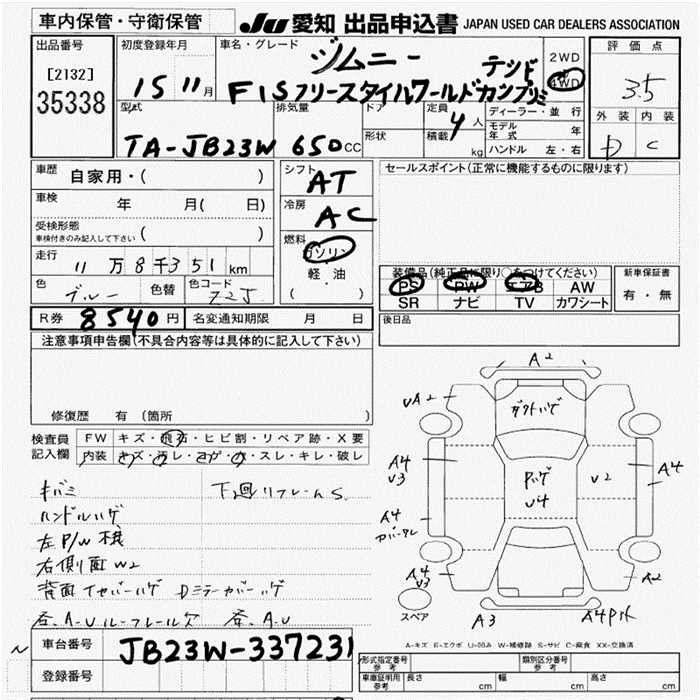 車内保管・守衛保管
JU 愛知 出品申込書 JAPAN USED CAR DEALERS ASSOCIATION
出品番号
[2132]
35338
初度登録年月
15 11月
車名・グレード
ジムニー
FISフリースタイルワールドカップリミテッド
2WD
4WD
評価点
3.5
外装 内装
D C
型式
TA-JB23W
排気量
650CC
ドア
形状
定員
4人
積載
kg
ディーラー・並行
モデル年式 年
ハンドル 左・右
車歴
自家用・( )
車検
年 月( 日)
受検形態
車検付きのみ記入して下さい ( )
走行
11万8千351km
色
ブルー
色替
色コード
Z2J
シフト
AT
冷房
AC
燃料
ガソリン
軽・油
( )
セールスポイント(正常に機能するものに限ります)
装備品(純正品に限り○をつけてください)
PS PW エアB AW
SR ナビ TV カワシート
新車保証書
有・無
R券 8540円
名変通知期限 月 日
後日品
注意事項申告欄(不具合内容等は具体的に記入して下さい)
修復歴 有(箇所 )
検査員記入欄
FW キズ・飛石・ヒビ割・リペア跡・X要
内装 キズ・汚レ・コゲ・穴・スレ・キレ・破レ
キバミ
下廻リフレームS
ハンドルハゲ
左P/W機
右側面W2
背面
Dミラーカバーハゲ
各A-Uルーフレール欠 各A-U
A2
UA2
ダクトハゲ
A4
U3
A4
U3
U2
Pハゲ
U4
A4
A4
U3
A2
A3
スペア
A-キズ E-エクボ U-凹み W-補修跡 S-サビ C-腐食 XX-交換済
車台番号
JB23W-337231
登録番号
形式指定番号
参考
類別区分番号
参考
車庫証明用
参考
長さ cm
幅 cm
高さ cm